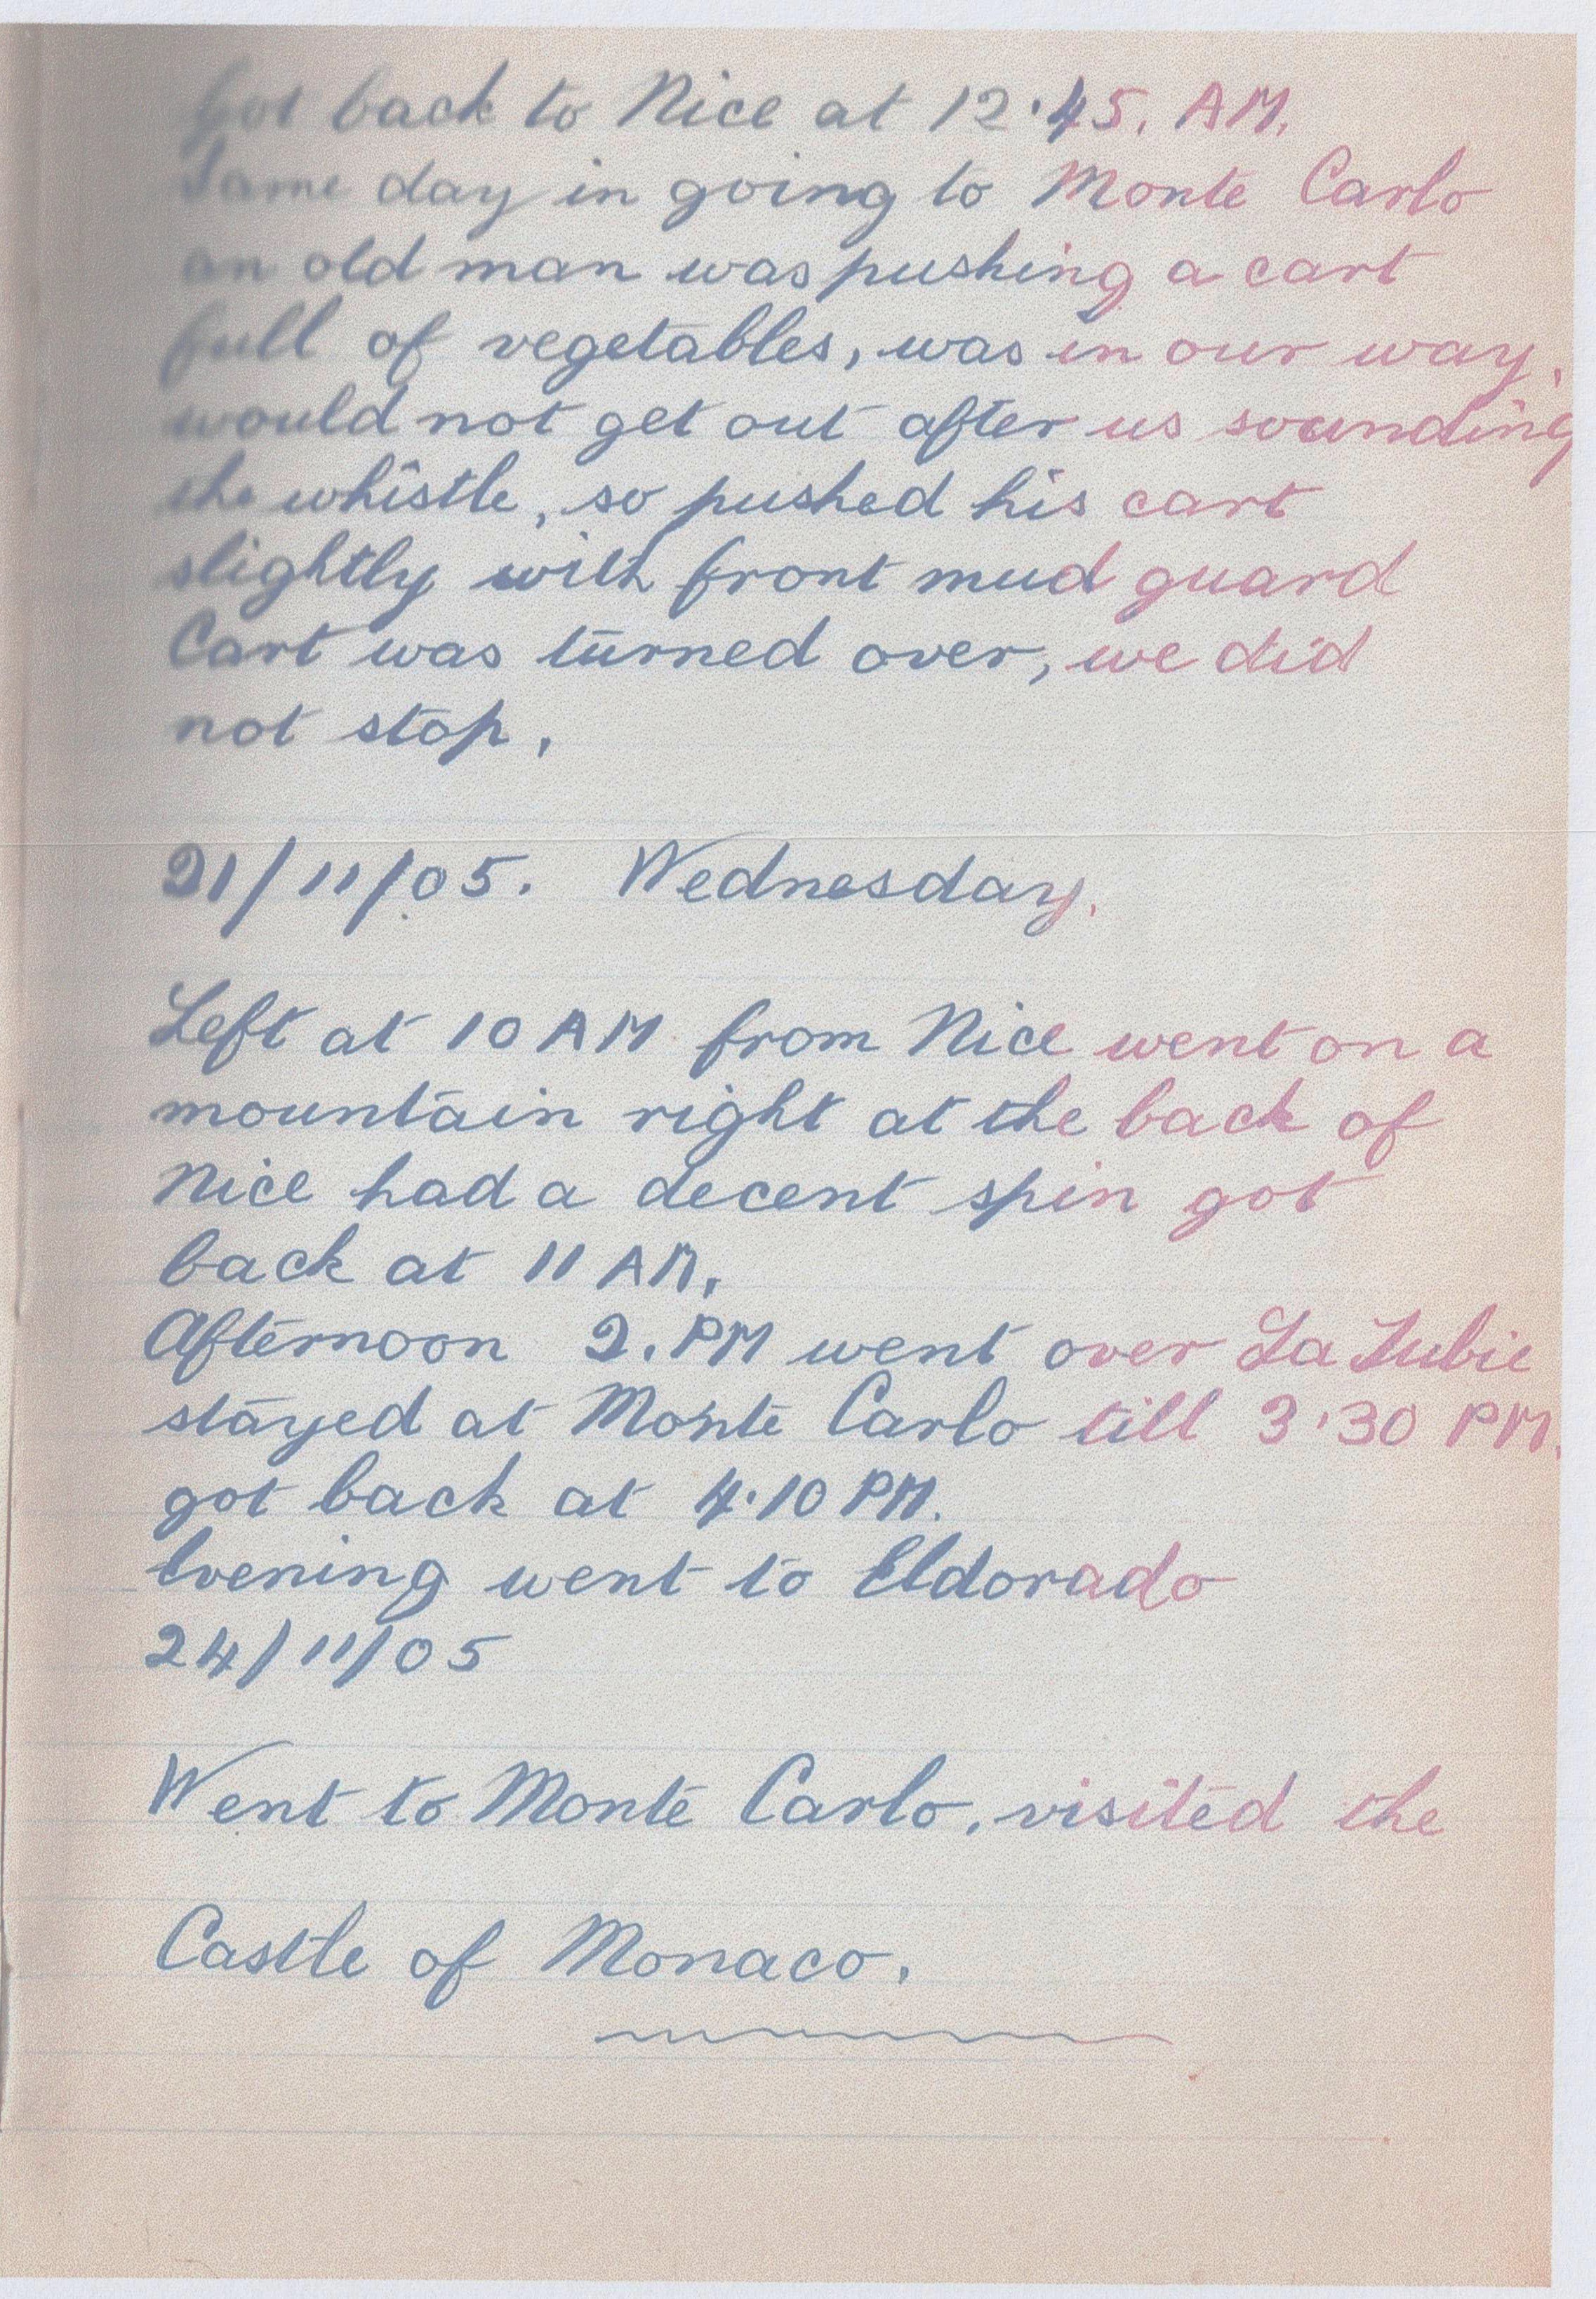 Got back to Nice at 12·45. AM.
Same day in going to Monte Carlo
an old man was pushing a cart
full of vegetables, was in our way,
would not get out after us sounding
the whistle, so pushed his cart
slightly with front mud guard
Cart was turned over, we did
not stop.
21/11/05. Wednesday.
Left at 10 AM from Nice went on a
mountain right at the back of
Nice had a decent spin got
back at 11 AM.
Afternoon 2. PM went over La Tubie
stayed at Monte Carlo till 3·30 PM.
got back at 4·10 PM.
Evening went to Eldorado
24/11/05
Went to Monte Carlo, visited the
Castle of Monaco.